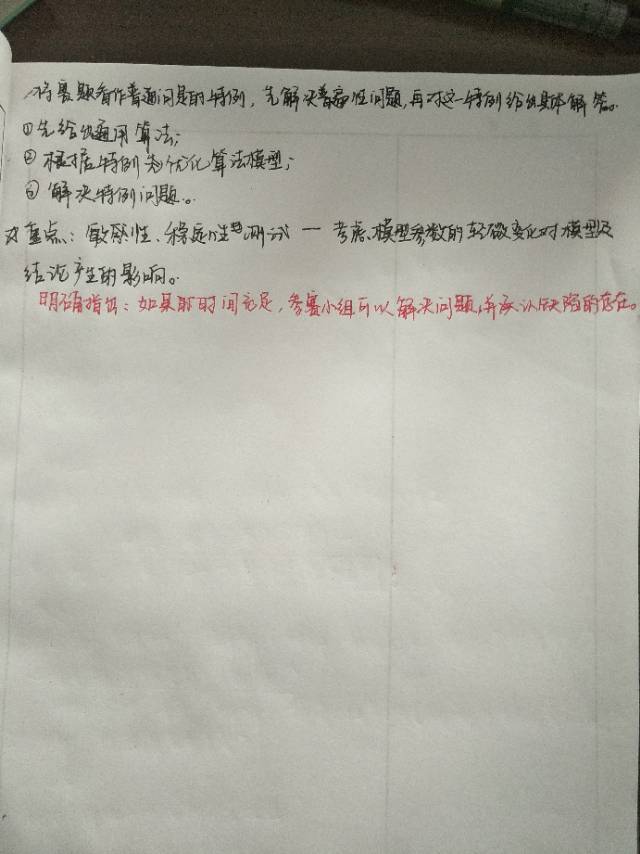 将赛题看作普通问题的特例，先解决普遍性问题，再对这一特例给出具体解答。
①先给出通用算法；
②根据特例为优化算法模型；
③解决特例问题。
重点：敏感性、稳定性测试 — 考虑模型参数的轻微变化对模型及
结论产生的影响。
明确指出：如果时间充足，参赛小组可以解决问题，并承认缺陷的存在。